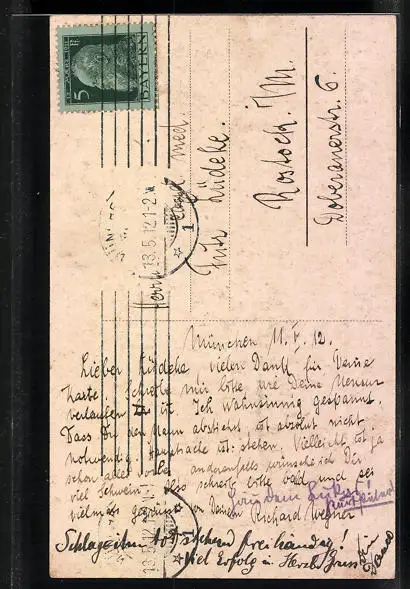 5 Pf
BAYERN
MÜNCHEN
13.5.12.1-2
1
Herrn
med.
Fritz Lüdeke.
Rostock i/M.
Doberanerstr. 6.
München 11. V. 12.
Lieber Lüdeke vielen Dank für Deine
Karte. Schreibe mir bitte wie Deine Mensur
verlaufen ist. Ich wahnsinnig gespannt.
Dass Du den Mann abstichst ist absolut nicht
notwendig. Hauptsache ist: stehen. Vielleicht ist ja
schon alles vorbei, anderenfalls wünsche ich Dir
viel Schwein. Also schreib bitte bald und sei
vielmals gegrüsst von Deinem Richard Wegner
Schlag ihn tot stehend freihändig!
Viel Erfolg u. Herzl. Gruss